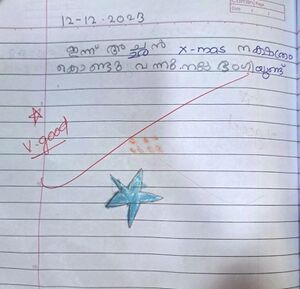 12-12-2023
ഇന്ന് അച്ഛൻ x-mas നക്ഷത്രം
കൊണ്ടു വന്നു. നല്ല ഭംഗിയുണ്ട്
v. good